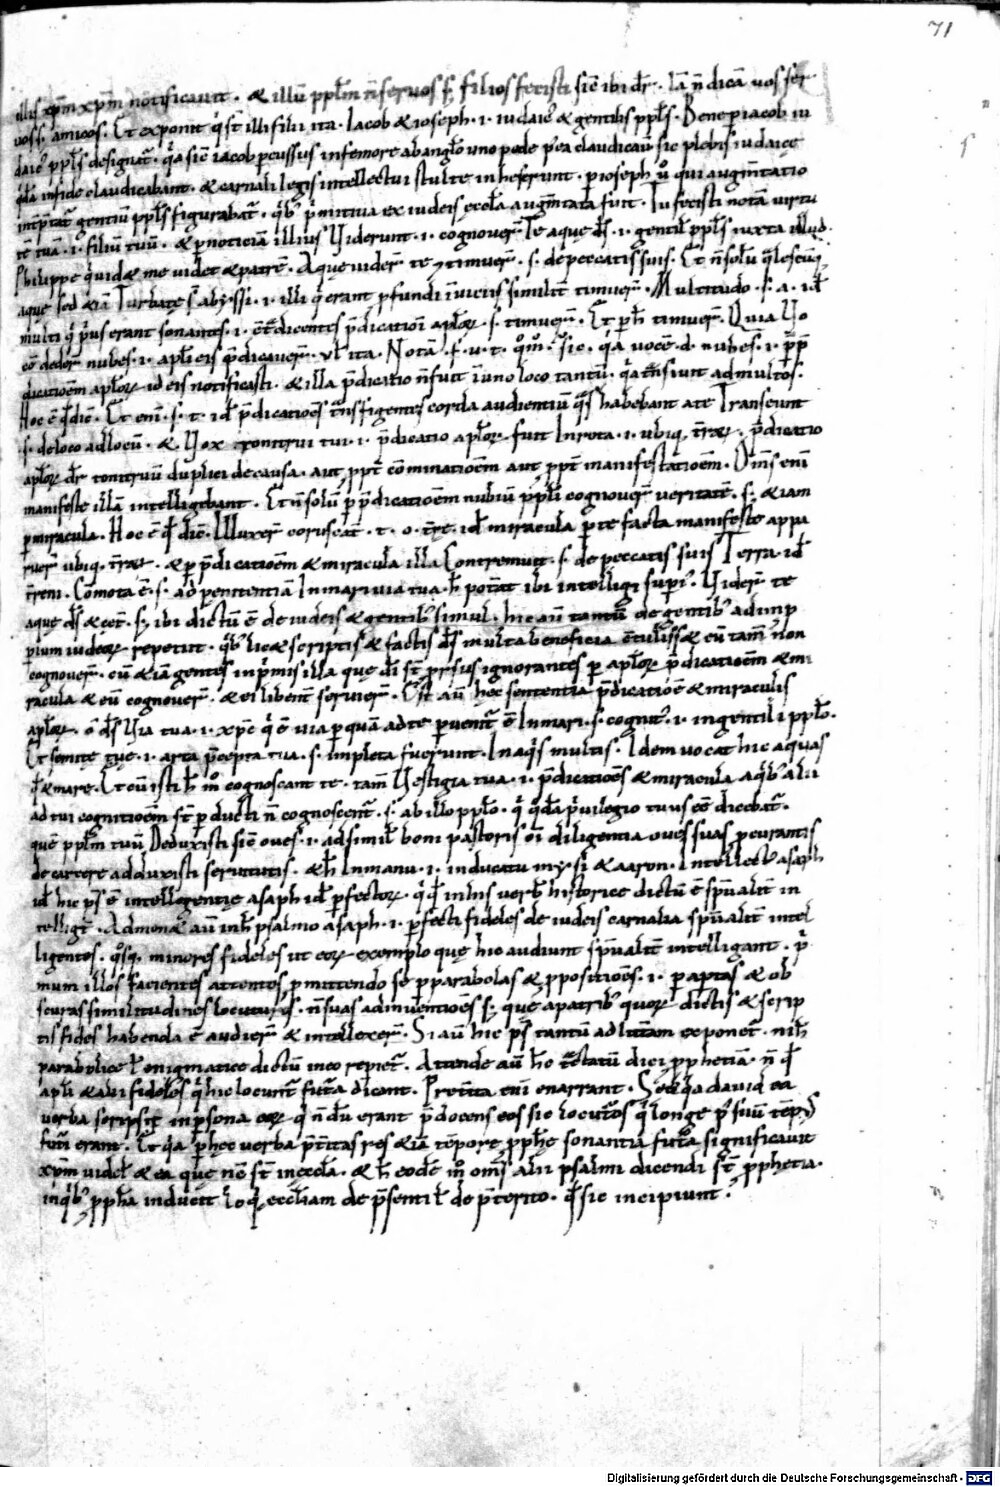 71
illis xp̄m xp̄m notificauit . & illū ppl̄m n̄ seruos s; filios fecisti sic̄ ibi dr̄ . Iā n̄ dicā uos ser
uos s; amicos . Et exponit q̇ st̄ illi filii ita . Iacob & ioseph . i . iudaic9 & gentilis ppl̄s . Bene p iacob iu
daic9 ppl̄s designat̄ . q̇a sic̄ iacob pcussus in femore ab anglo uno pede claudicauit sic plebis iudaicę
infide claudicabant . & carnali legis intellectui stulte inheserunt . p ioseph ů qui augmentatio
int̄ptat̄ gentiū ppl̄s figurabat̄ . q̇b; p̄mitiua ex iudeis ęccl̄a augm̄tata fuit . Tu fecisti notā uirtu
tē tuā . i . filiū tuū . & p noticiā illius Uiderunt . i . cognouer̄ Te aque ds̄ . i . gentil̄ ppl̄s iuxta illud .
Philippe q̇ uid& me uidet & patrē . Aque uider̄ te & timuer̄ . s . de peccatis suis . Et n̄ solū
aque sed &iā Turbatę s̄ abyssi . i . illi q̇ erant pfundi in uiciis similit̄ timuer̄ . Multitudo . s . a . id ē
multi q̇ p̄us erant sonantes . i . 9tdicentes p̄dicationi apl̄oꝝ . s . timuer̄ . Et p h̄ timuer̄ . Quia Uo
cē deder̄ nubes . i . apl̄i eis p̄dicauer̄ . ul̄ ita . Notā . f . u . t . q̊m̊ . sic . q̇a uocē . d . nubes . i . p̄
dicationē apl̄oꝝ id eis notificasti . & illa p̄dicatio n̄ fuit in uno loco tantū . q̇a t̄nsiunt ad multos .
Hoc ē qd̄ dic̄ . Et eni . s . t . id ē p̄dicationes t̄nsfigentes corda audientiū q̇s habebant a te Transeunt
. s . de loco ad locū . & Uox tonitrui tui . i . p̄dicatio apl̄oꝝ . fuit In rota . i . ubiq; t̄rarꝝ . p̄dicatio
apl̄oꝝ dr̄ tonitruū duplici de causa . aut ppt̄ cōminationem aut ppt̄ manifestationem . Om̄s eni
manifeste illā intelligebant . Et n̄ solū p p̄dicationem nubiū ppl̄i cognouer̄ ueritatē . s; & iam
p miracula . Hoc ē qd̄ dic̄ . Illuxer̄ coruscat̄ . t . o . t̄rę . id ē miracula p te facta manifeste appa
ruer̄ ubiq; t̄rarꝝ . & p p̄dicationem & miracula illa Contremuit . s . de peccatis suis Terra . id ē
t̄reni . Cōmota ē . s . ad penitentiā In mari uia tua . h̄ potat̄ ibi intelligi sup̄i9 . Uider̄ te
aque ds̄ & cęt̄ . s; ibi dictū ē de iudeis & gentib; simul . hic aū tantū de gentib; ad inp
piū iudeoꝝ repetit . q̇b; lic& scriptis & factis ds̄ multa beneficia 9tuliss& eū tam̄ non
cognouer̄ . cū &iā gentes in p̄mis illa que di st̄ prsus ignorantes p apl̄oꝝ p̄dicationem & mi
racula & eū cognouer̄ . & ei libent̄ seruier̄ . Est aū hec sententia p̄dicatioē & miraculis
apl̄oꝝ . o ds̄ Uia tua . i . xpc̄ q̇ ē uia p quā ad te puenit̄ ē In mari . s . cognit9 . i . in gentili pplo .
Et semitę tuę . i . arta p̄cepta tua . s . impleta fuerunt . In aq̇s multis . Idem uocat hic aquas
qd̄ & mare . Et cū isti h̄ m̊ cognoscant te . tam̄ Uestigia tua . i . p̄dicationes & miracula a q̇b; alii
ad tui cognitionem st̄ p ducti n̄ cognoscent̄ . s . ab illo pplo . q̇ q̇dā p̄uilegio tuus eē dicebat̄ .
quē ppl̄m tuū Deduxisti sic̄ oues . i . ad simil̄ boni pastoris oī diligentia oues suas pcurantis
de carcere adduxisti seruitutis . & h̄ In manu . i . in ducatu moysi & aaron . Intellect9 asaph
id ē hic ps̄ ē intelligentię asaph id ē pfectoꝝ . q̇ qd̄ in his uerb̄ historice dictū ē sp̄ualit̄ in
telligit̄ . Admon& aū in h̄ psalmo asaph . i . pfecti fideles de iudeis carnalia sp̄ualit̄ intel
ligentes . q̊sq; minores fideles ut eoꝝ exemplo que hic audiunt sp̄ualit̄ intelligant . p̄
mum illos facientes attentos pmittendo se p parabolas & ppositiones . i . p aptas & ob
scuras similitudines locuturos . n̄ suas adinuentiones s; que a patrib; quoꝝ dictis & scrip
tis fides habenda ē audier̄ & intellexer̄ . Si aū hic ps̄ tantū ad litt̄am exponet̄ . nih̄
parabolice ul̄ enigmatice dictū in eo repiet̄ . Attende aū h̄ t̄ctatū dici pphetiā . n̄ qd̄
apl̄i & alii fideles q̇ hic locunt̄ futura dicant . Pret̄ita eni enarrant . Sed q̇a dauid ea
uerba scripsit in psona eoꝝ q̇ n̄dū erant p̄docens eos sic locuturos q̇ longe p̄ suū temp9
futuri erant . Et q̇a p hec uerba p̄t̄itas res &iā tempore pphę sonantia futura significauit
xp̄m uidel̄ & ea que nc̄ st̄ in eccl̄a . & h̄ eodē m̊ om̄s alii psalmi dicendi st̄ pphetia .
in q̇b; ppha inducit loq̇ eccl̄iam de p̄senti ul̄ de p̄terito . q̇ sic incipiunt .
Digitalisierung gefördert durch die Deutsche Forschungsgemeinschaft - DFG